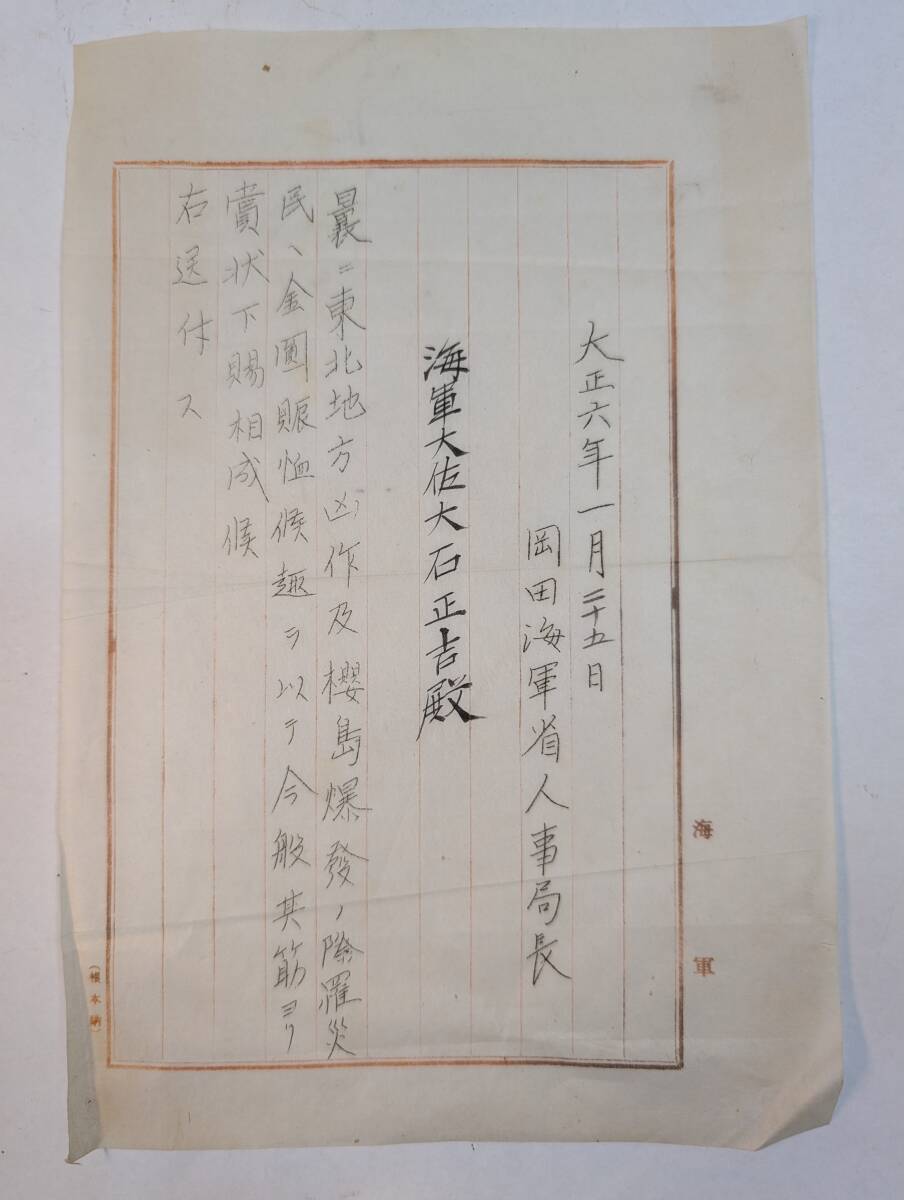 大正六年一月二十五日
岡田海軍省人事局長
海軍大佐大石正吉殿
曩ニ東北地方凶作及櫻島爆發ノ際羅災
民ヘ金圓賑恤候趣ヲ以テ今般其筋ヨリ
賞状下賜相成候
右送付ス
海軍